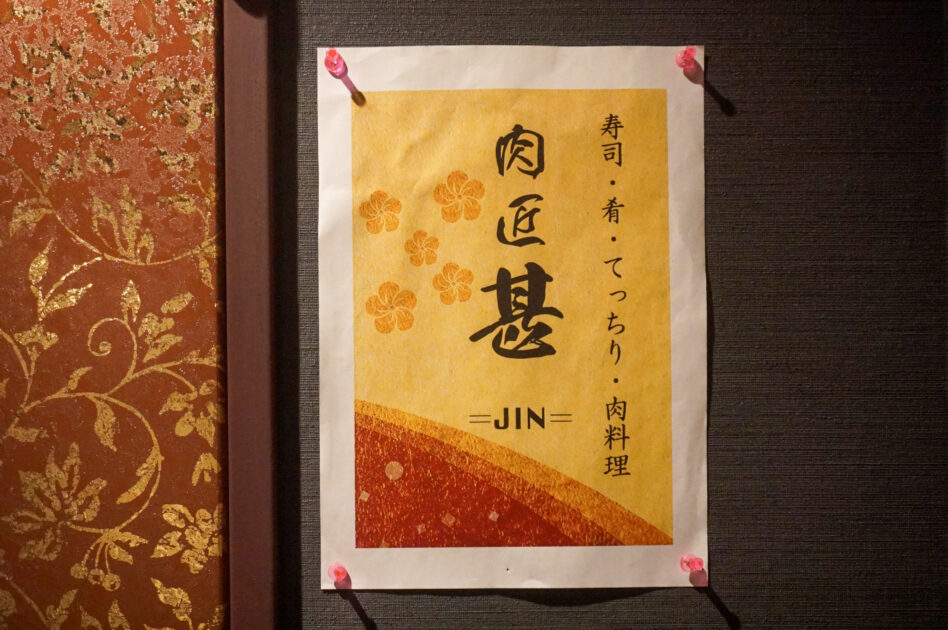 寿司・肴・てっちり・肉料理
肉匠甚
=JIN=